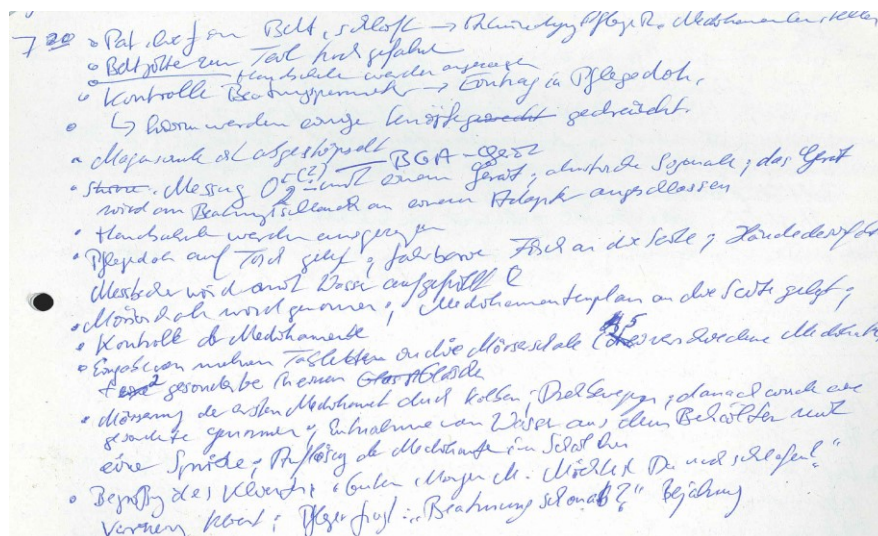 7 20 • Pat. liegt im Bett, schläft → Pfleger Medikamente stellen
• Bettgitter zum Teil hoch gefahren
• Handschuhe werden angezogen
• Kontrolle Beatmungsparameter → Eintrag in Pflegedok.
• ↳ hierzu werden einige Knöpfe gedrückt
• Magensonde ist abgestöpselt
BGA-Gerät
• Messung O2 (?) mit einem Gerät; akustische Signale; das Gerät
wird am Beatmungsschlauch an einem Adapter angeschlossen
• Handschuhe werden ausgezogen
• Pflegedok auf Tisch gelegt; fahrbarer Tisch an die Seite; Händedesinf
Messbecher wird mit Wasser aufgefüllt
• Mörserschale wird genommen; Medikamentenplan an die Seite gelegt;
• Kontrolle der Medikamente
• Eingabe von mehreren Tabletten in die Mörserschale ( 5 verschiedene Medikam
gesonderte in einen
• Mörserung der ersten Medikamente durch Kolben; Drehbewegung; danach wurde eine
gesonderte genommen; Entnahme von Wasser aus dem Behälter mit
einer Spritze; Auflösung der Medikamente im Schälchen
• Begrüßung des Klienten: "Guten Morgen M. Möchtest Du noch schlafen?"
Verneinung Klient; Pfleger fragt: "Beatmung schon ab?" Bejahung